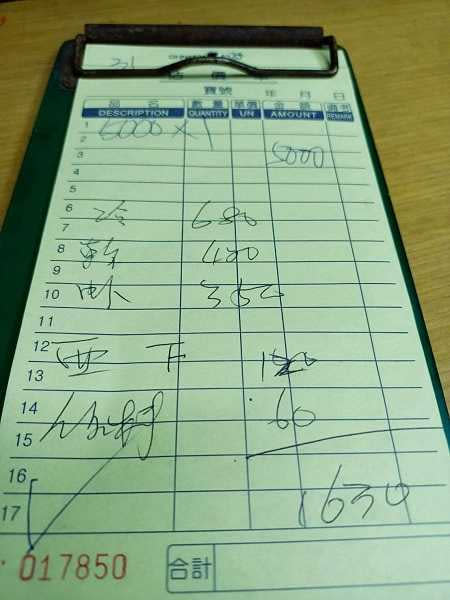 估 價
寶號 年 月 日
品 名 數 量 單價 金 額 備考
DESCRIPTION QUANTITY UN AMOUNT REMARK
1 6000 x 1
2
3 5000
4
5
6 冷 680
7
8 420
9
10 350
11
12 西 下
13 120
14 60
15
16
17 1630
017850 合計